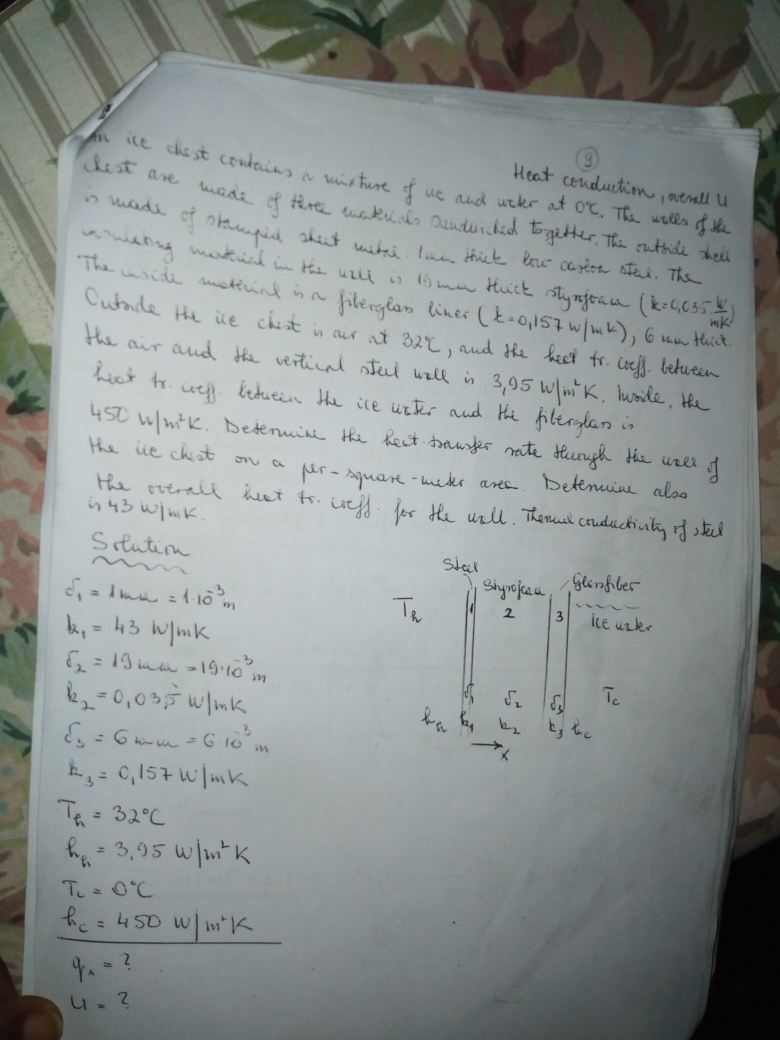 9
Heat conduction, overall U
An ice chest contains a mixture of ice and water at 0°C. The walls of the
chest are made of three materials sandwiched together. The outside shell
is made of stamped sheet metal 1mm thick low carbon steel. The
insulating material in the wall is 19mm thick styrofoam (k=0,035 W/mK)
The inside material is a fiberglas liner (k=0,157 W/mK), 6 mm thick.
Outside the ice chest is air at 32°C, and the heat tr. coeff. between
the air and the vertical steel wall is 3,95 W/m²K. Inside, the
heat tr. coeff. between the ice water and the fiberglas is
450 W/m²K. Determine the heat transfer rate through the wall of
the ice chest on a per-square-meter area. Determine also
the overall heat tr. coeff. for the wall. Thermal conductivity of steel
is 43 W/mK.
Solution
δ₁ = 1mm = 1·10⁻³m
k₁ = 43 W/mK
δ₂ = 19mm = 19·10⁻³m
k₂ = 0,035 W/mK
δ₃ = 6mm = 6·10⁻³m
k₃ = 0,157 W/mK
Tₕ = 32°C
hₕ = 3,95 W/m²K
Tc = 0°C
hc = 450 W/m²K
U = ?
Steel
Styrofoam
Glassfiber
Tₕ
1
2
3
ice water
δ₁
δ₂
δ₃
Tc
hₕ
k₁
k₂
k₃
hc
x